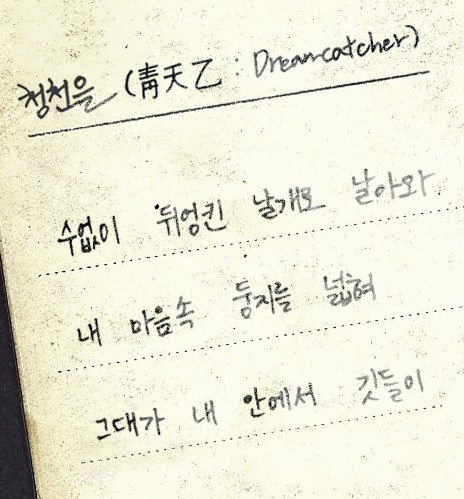 청천을 (靑天乙 : Dreamcatcher)
수없이 뒤엉킨 날개로 날아와
내 마음속 둥지를 넓혀
그대가 내 안에서 깃들이